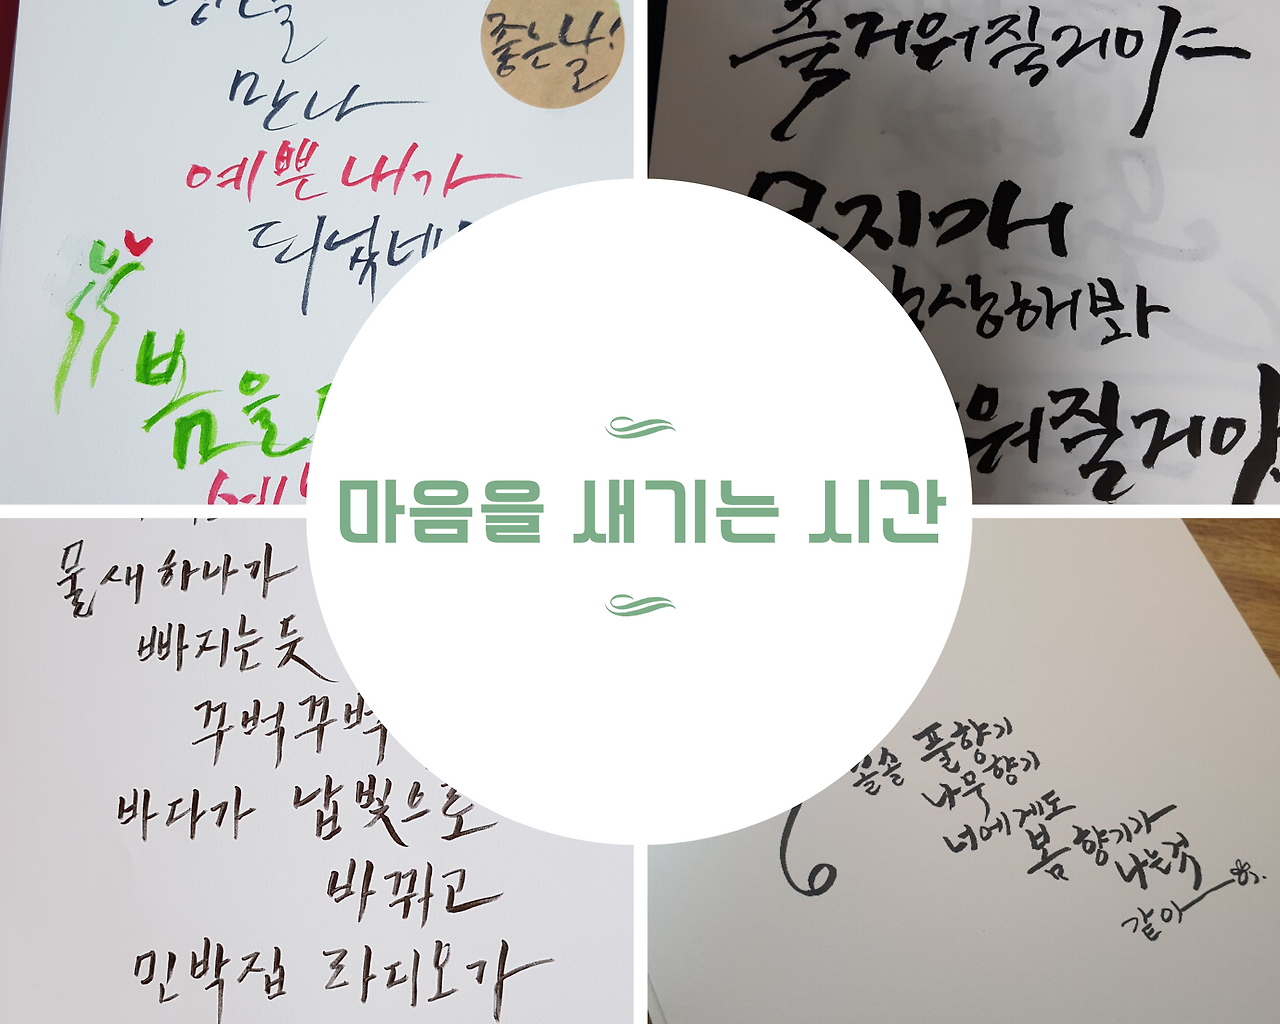 좋은날!
만나
예쁜 내가
되었네
봄을
즐거워질거야
무지개
상상해봐
워질거야
마음을 새기는 시간
물새 하나가
빠지는 듯
꾸벅꾸벅
바다가 납빛으로
바뀌고
민박집 라디오가
솔솔 풀향기
나무향기
너에게도
봄 향기가
나는것
같아